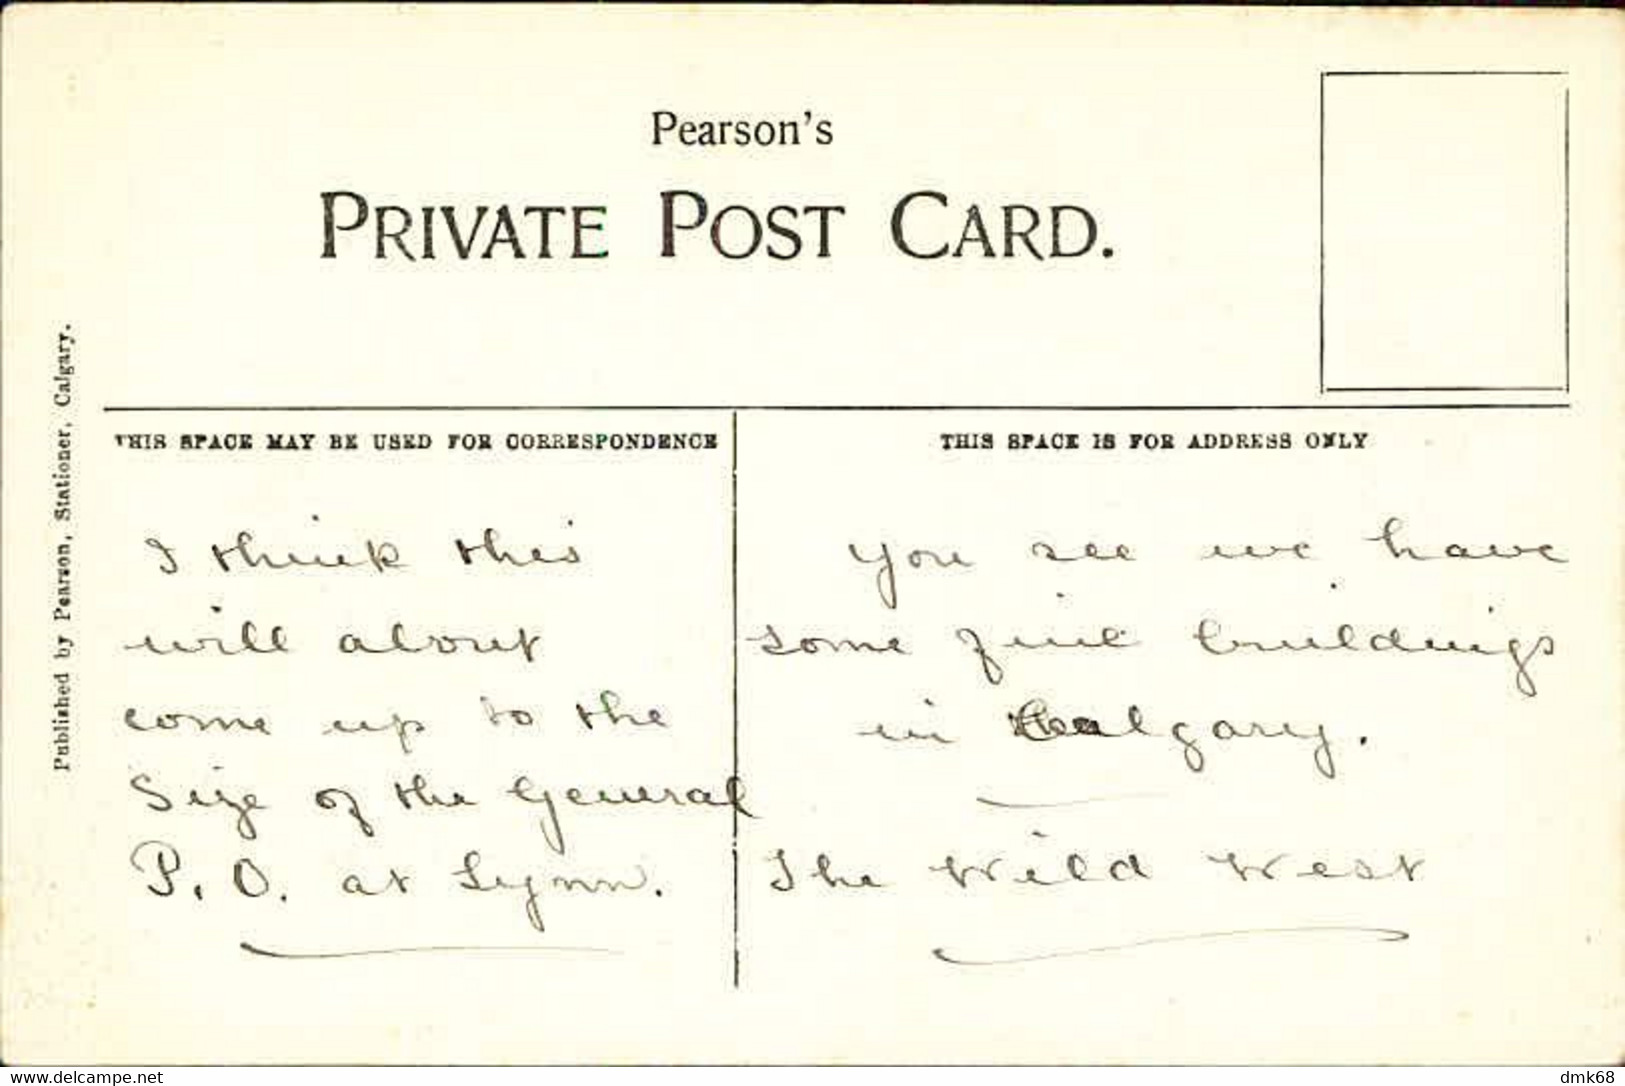 Pearson's
PRIVATE POST CARD.
Published by Pearson, Stationer, Calgary.
THIS SPACE MAY BE USED FOR CORRESPONDENCE
I think this
will about
come up to the
size of the General
P. O. at Lynn.
THIS SPACE IS FOR ADDRESS ONLY
You see we have
some fine buildings
in Calgary.
The Wild West
www.delcampe.net
dmk68